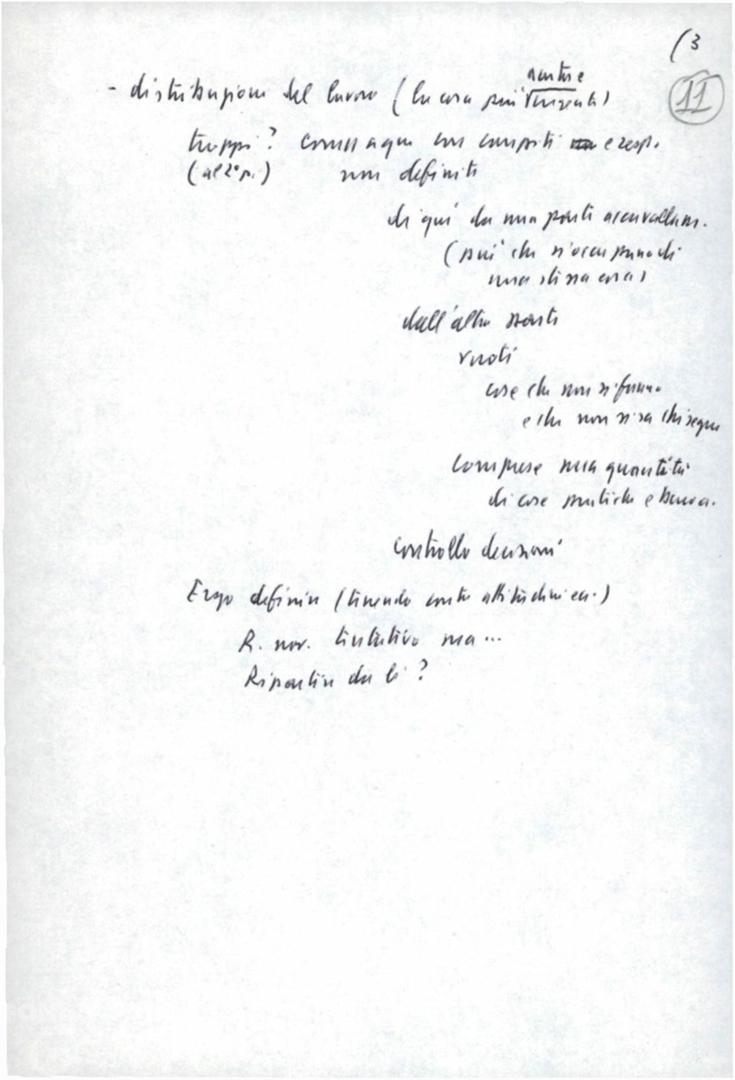 (3
11
- distribuzione del lavoro (la cosa più urgente)
troppi? comunque con compiti e resp.
(al 2° p.) non definiti
di qui da una parti accavallam.
(più che s'occupano di
una stessa cosa)
dall'altra parte
vuoti
cose che non si fanno
e che non si sa chi segue
comprese una quantità
di cose pratiche e buroc.
controllo decisioni
Ergo definire (tenendo conto attitudini ecc.)
R. nov. tentativo ma...
Ripartire da lì?